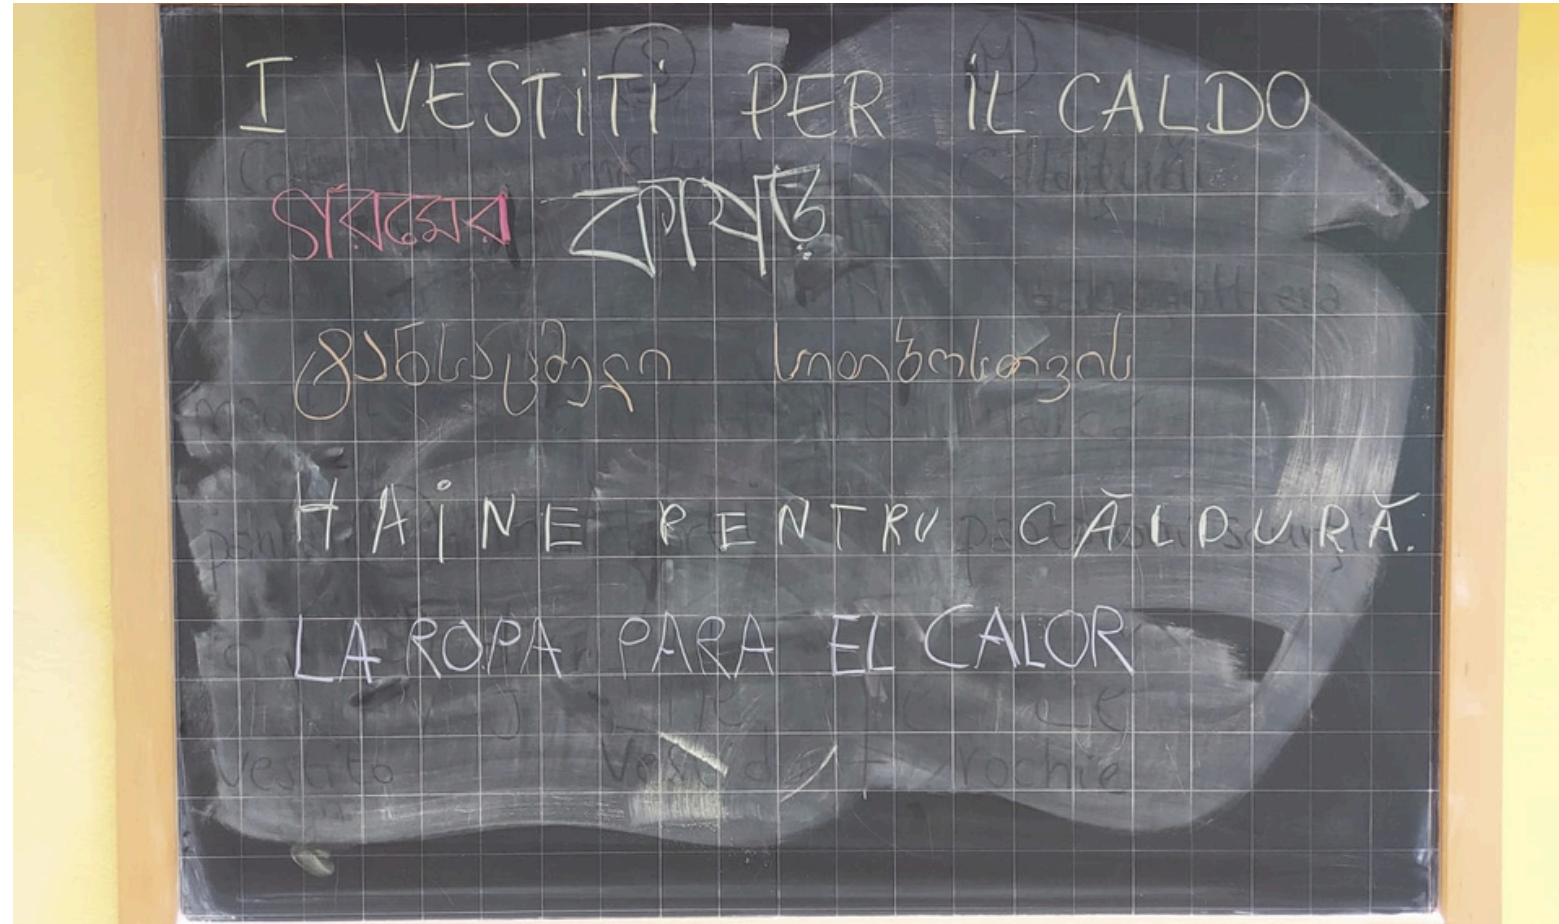 I VESTITI PER IL CALDO
গরমের কাপড়
ტანსაცმელი სითბოსთვის
HAINE PENTRU CĂLDURĂ.
LA ROPA PARA EL CALOR
vestito rochie